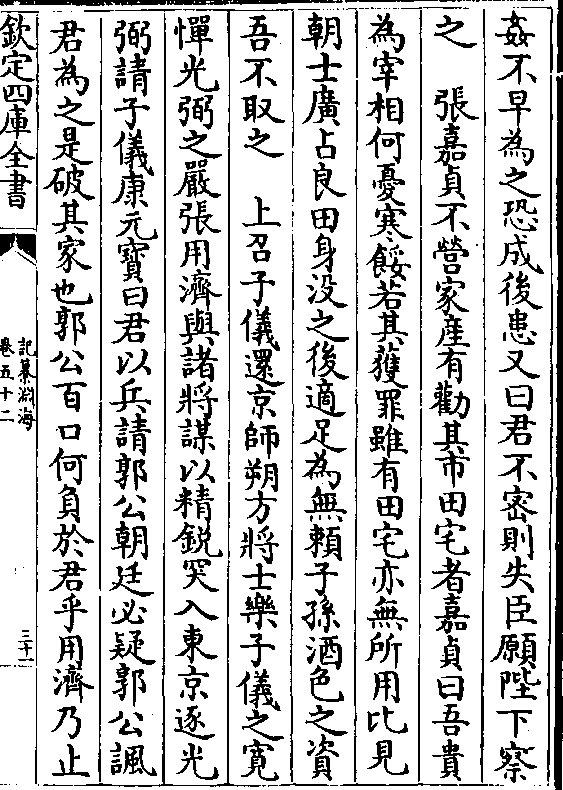 姦不早為之恐成後患又曰君不密則失臣願陛下察
之　張嘉貞不營家産有勸其市田宅者嘉貞曰吾貴
為宰相何憂寒餒若其獲罪雖有田宅亦無所用比見
朝士廣占良田身没之後適足為無賴子孫酒色之資
吾不取之　上召子儀還京師朔方將士樂子儀之寛
憚光弼之嚴張用濟與諸將謀以精鋭突入東京逐光
弼請子儀康元寶曰君以兵請郭公朝廷必疑郭公諷
君為之是破其家也郭公百口何負於君乎用濟乃止
欽定四庫全書
記纂淵海
卷五十二
三十一